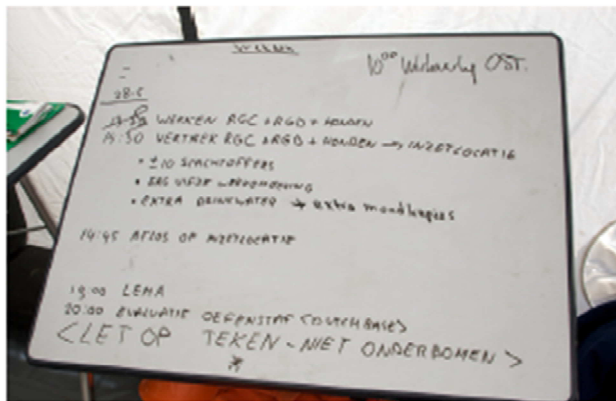 10⁰⁰ OST.
28-6
WEKKEN RGC + RGD + HONDEN
14:30 VERTREK RGC + RGD + HONDEN → INZETLOCATIE
• ±10 SLACHTOFFERS
• ERG VIEZE WERKOMGEVING
• EXTRA DRINKWATER → extra mondkapjes
14:45 AFLOS OP INZETLOCATIE
19:00 LEMA
20:00 EVALUATIE OEFENSTAF (DUTCHBASE)
<LET OP TEKEN - NIET ONDER BOMEN>